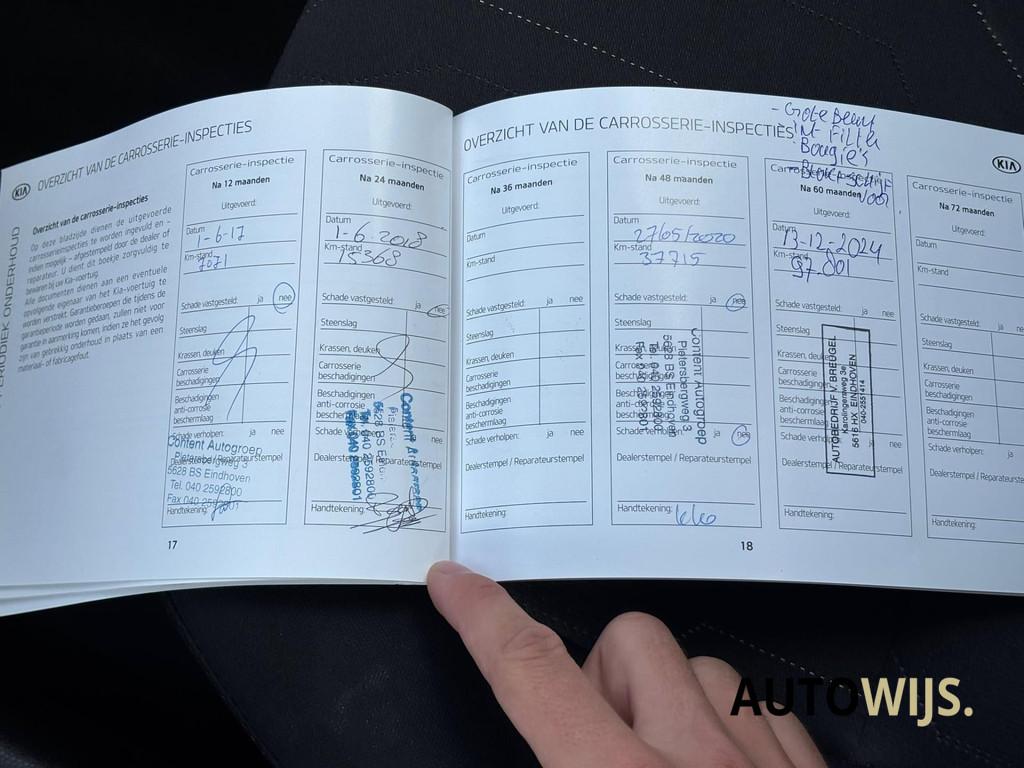 KIA OVERZICHT VAN DE CARROSSERIE-INSPECTIES
PERIODIEK ONDERHOUD
Overzicht van de carrosserie-inspecties
Op deze bladzijde dienen de uitgevoerde
carrosserieinspecties te worden ingevuld en -
indien mogelijk - afgestempeld door de dealer of
reparateur. U dient dit boekje zorgvuldig te
bewaren bij uw Kia-voertuig.
Alle documenten dienen aan een eventuele
opvolgende eigenaar van het Kia-voertuig te
worden verstrekt. Garantieberoepen die tijdens de
garantieperiode worden gedaan, zullen niet voor
garantie in aanmerking komen, indien ze het gevolg
zijn van gebrekkig onderhoud in plaats van een
materiaal- of fabricagefout.
Carrosserie-inspectie
Na 12 maanden
Uitgevoerd:
Datum
1-6-17
Km-stand
7071
Schade vastgesteld: ja nee
Steenslag
Krassen, deuken
Carrosserie
beschadigingen
Beschadigingen
anti-corrosie
beschermlaag
Schade verholpen: ja nee
Dealerstempel / Reparateurstempel
Content Autogroep
Pietersbergweg 3
5628 BS Eindhoven
Tel. 040 2592800
Fax 040 2592801
Handtekening:
17
Carrosserie-inspectie
Na 24 maanden
Uitgevoerd:
Datum
1-6-2018
Km-stand
15368
Schade vastgesteld: ja nee
Steenslag
Krassen, deuken
Carrosserie
beschadigingen
Beschadigingen
anti-corrosie
beschermlaag
Schade verholpen: ja nee
Dealerstempel / Reparateurstempel
5628 BS
Tel. 040 2592800
Fax 040 2592801
Handtekening:
OVERZICHT VAN DE CARROSSERIE-INSPECTIES
- Grote Beurt
Int Filter
Bougie's
voor
KIA
Carrosserie-inspectie
Na 36 maanden
Uitgevoerd:
Datum
Km-stand
Schade vastgesteld: ja nee
Steenslag
Krassen, deuken
Carrosserie
beschadigingen
Beschadigingen
anti-corrosie
beschermlaag
Schade verholpen: ja nee
Dealerstempel / Reparateurstempel
Handtekening:
Carrosserie-inspectie
Na 48 maanden
Uitgevoerd:
Datum
27/05/2020
Km-stand
37715
Schade vastgesteld: ja nee
Steenslag
Krassen, deuken
Carrosserie
beschadigingen
Beschadigingen
anti-corrosie
beschermlaag
Schade verholpen: ja nee
Content Autogroep
Pietersbergweg 3
5628 BS Eindhoven
Tel. 040 2592800
Fax 040 2592801
Dealerstempel / Reparateurstempel
Handtekening:
18
Carrosserie-inspectie
Na 60 maanden
Uitgevoerd:
Datum
13-12-2024
Km-stand
97.001
Schade vastgesteld: ja nee
Steenslag
Krassen, deuken
Carrosserie
beschadigingen
Beschadigingen
anti-corrosie
beschermlaag
Schade verholpen: ja nee
AUTOBEDRIJF V. BREUGEL
Karolingenweg 3e
5616 HX EINDHOVEN
040-2551414
Dealerstempel / Reparateurstempel
Handtekening:
Carrosserie-inspectie
Na 72 maanden
Uitgevoerd:
Datum
Km-stand
Schade vastgesteld: ja
Steenslag
Krassen, deuken
Carrosserie
beschadigingen
Beschadigingen
anti-corrosie
beschermlaag
Schade verholpen: ja
Dealerstempel / Reparateurste
Handtekening:
AUTOWIJS.